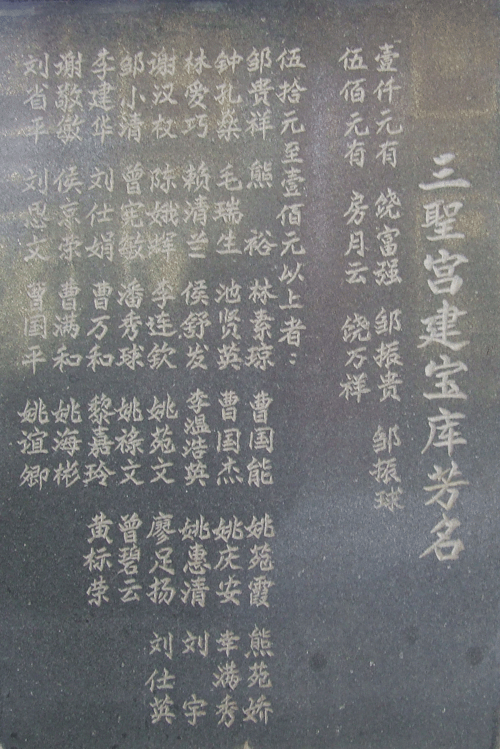 三聖宫建宝库芳名
壹仟元有 饶富强 邹振贵 邹振球
伍佰元有 房月云 饶万祥
伍拾元至壹佰元以上者：
邹贵祥 熊裕 林素琼 曹国能 姚苑霞 熊苑娇
钟孔燊 毛瑞生 池贤英 曹国杰 姚庆安 李满秀
林爱巧 赖清兰 侯舒发 李温浩英 姚惠清 刘宇
谢汉权 陈娥辉 李连钦 姚苑文 廖足扬 刘仕英
邹小清 曾宪毅 潘秀球 姚禄文 曾碧云
李建华 刘仕娟 曹万和 黎嘉玲 黄标荣
谢敬敏 侯京荣 曹满和 姚海彬
刘省平 刘思文 曹国平 姚谊卿